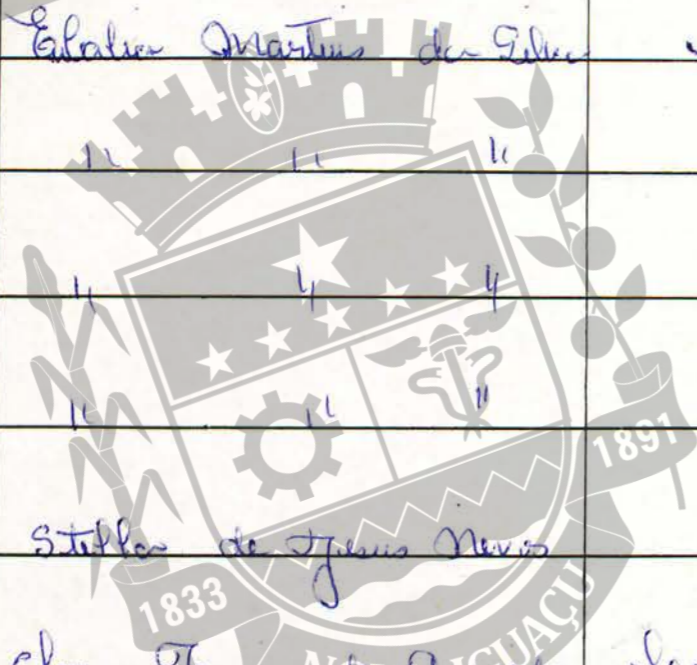 Eulalia Martins da Silva
" " "
" " "
" " "
Stella de Jesus Neves
1833
1891
NOVA IGUAÇU